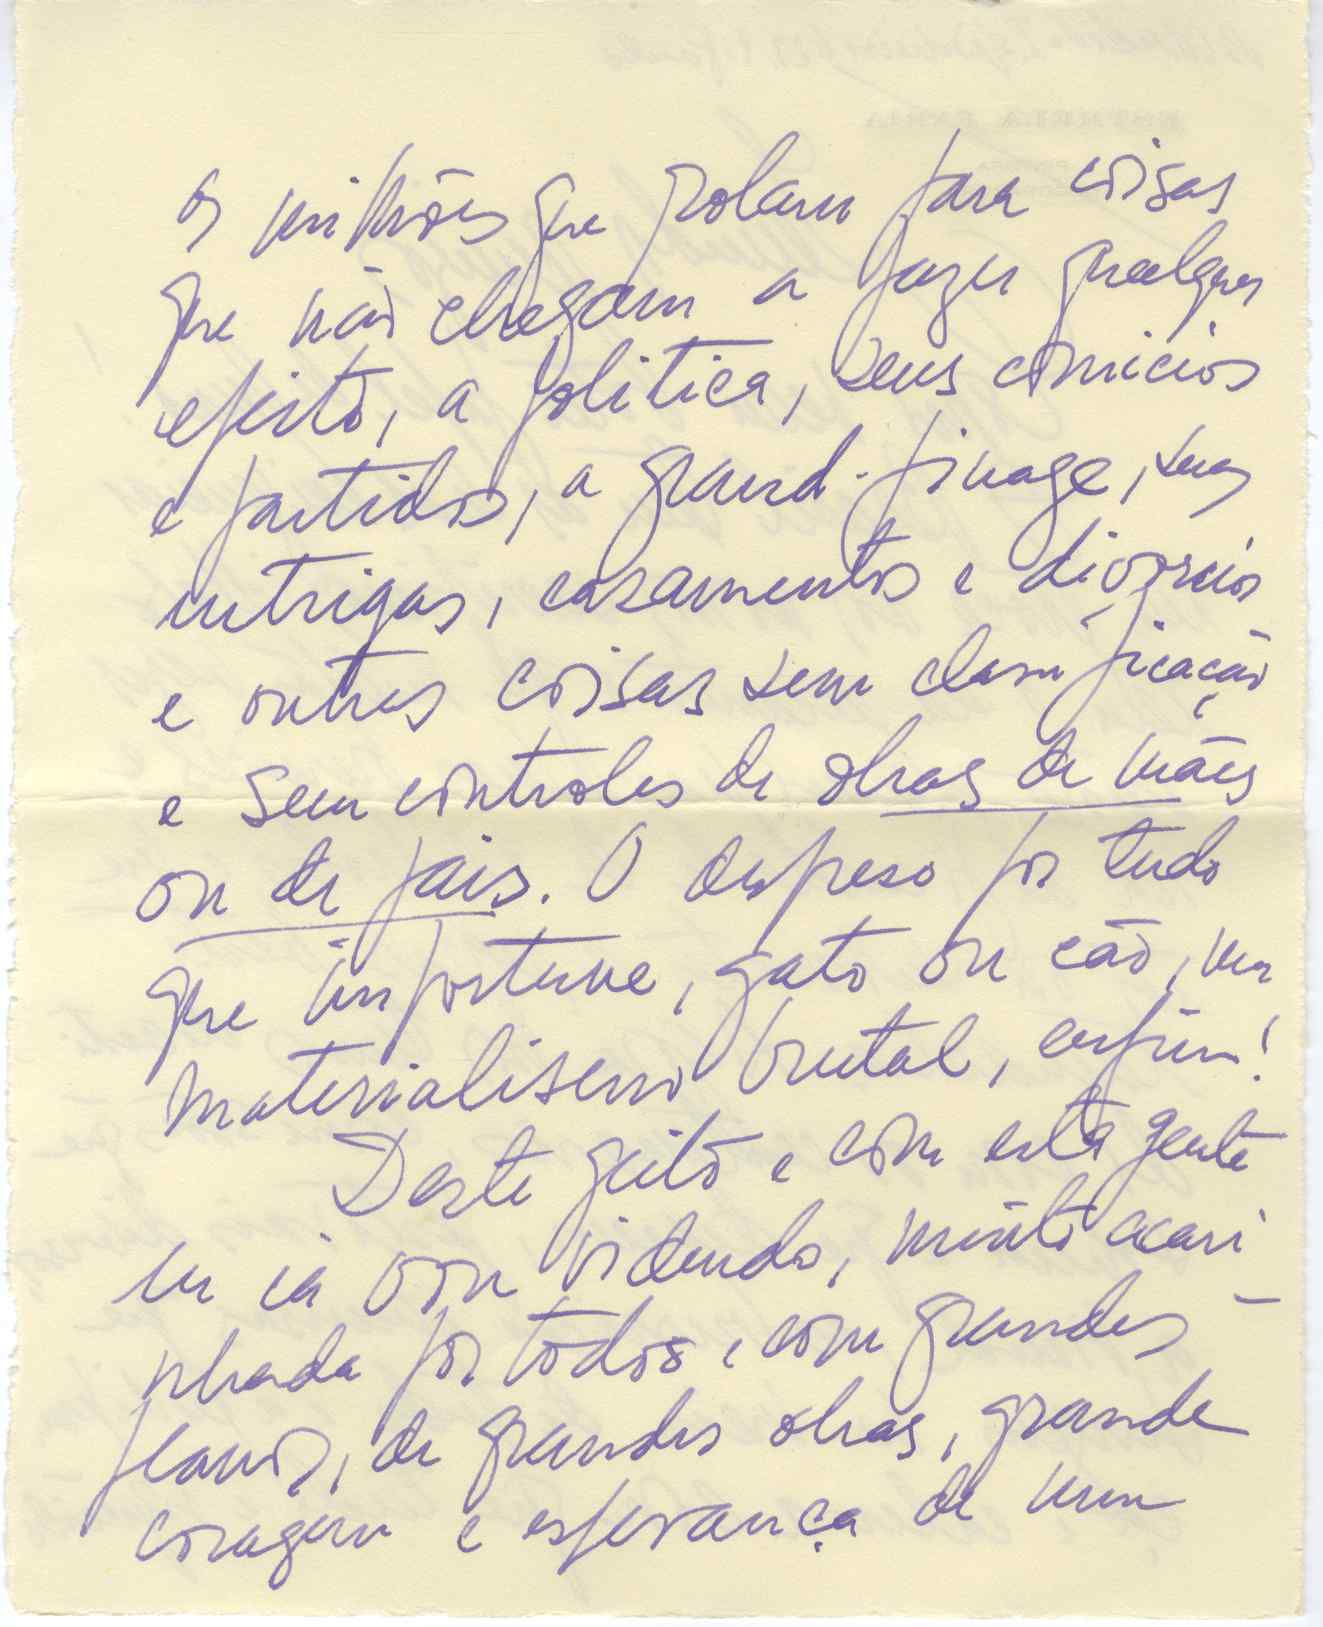 os milhões que rolam para coisas
que não chegam a fazer qualquer
efeito, a politica, seus comicios
e partidos, a grand-finage, suas
intrigas, casamentos e divorcios
e outras coisas sem classificação
e sem controles de obras de mães
ou de pais. O despreso por tudo
que importune, gato ou cão, um
materialismo brutal, enfim!
Deste geito e com esta gente
eu cá vou vivendo, muito acari-
nhada por todos e com grandes
planos, de grandes obras, grande
coragem e esperança de um